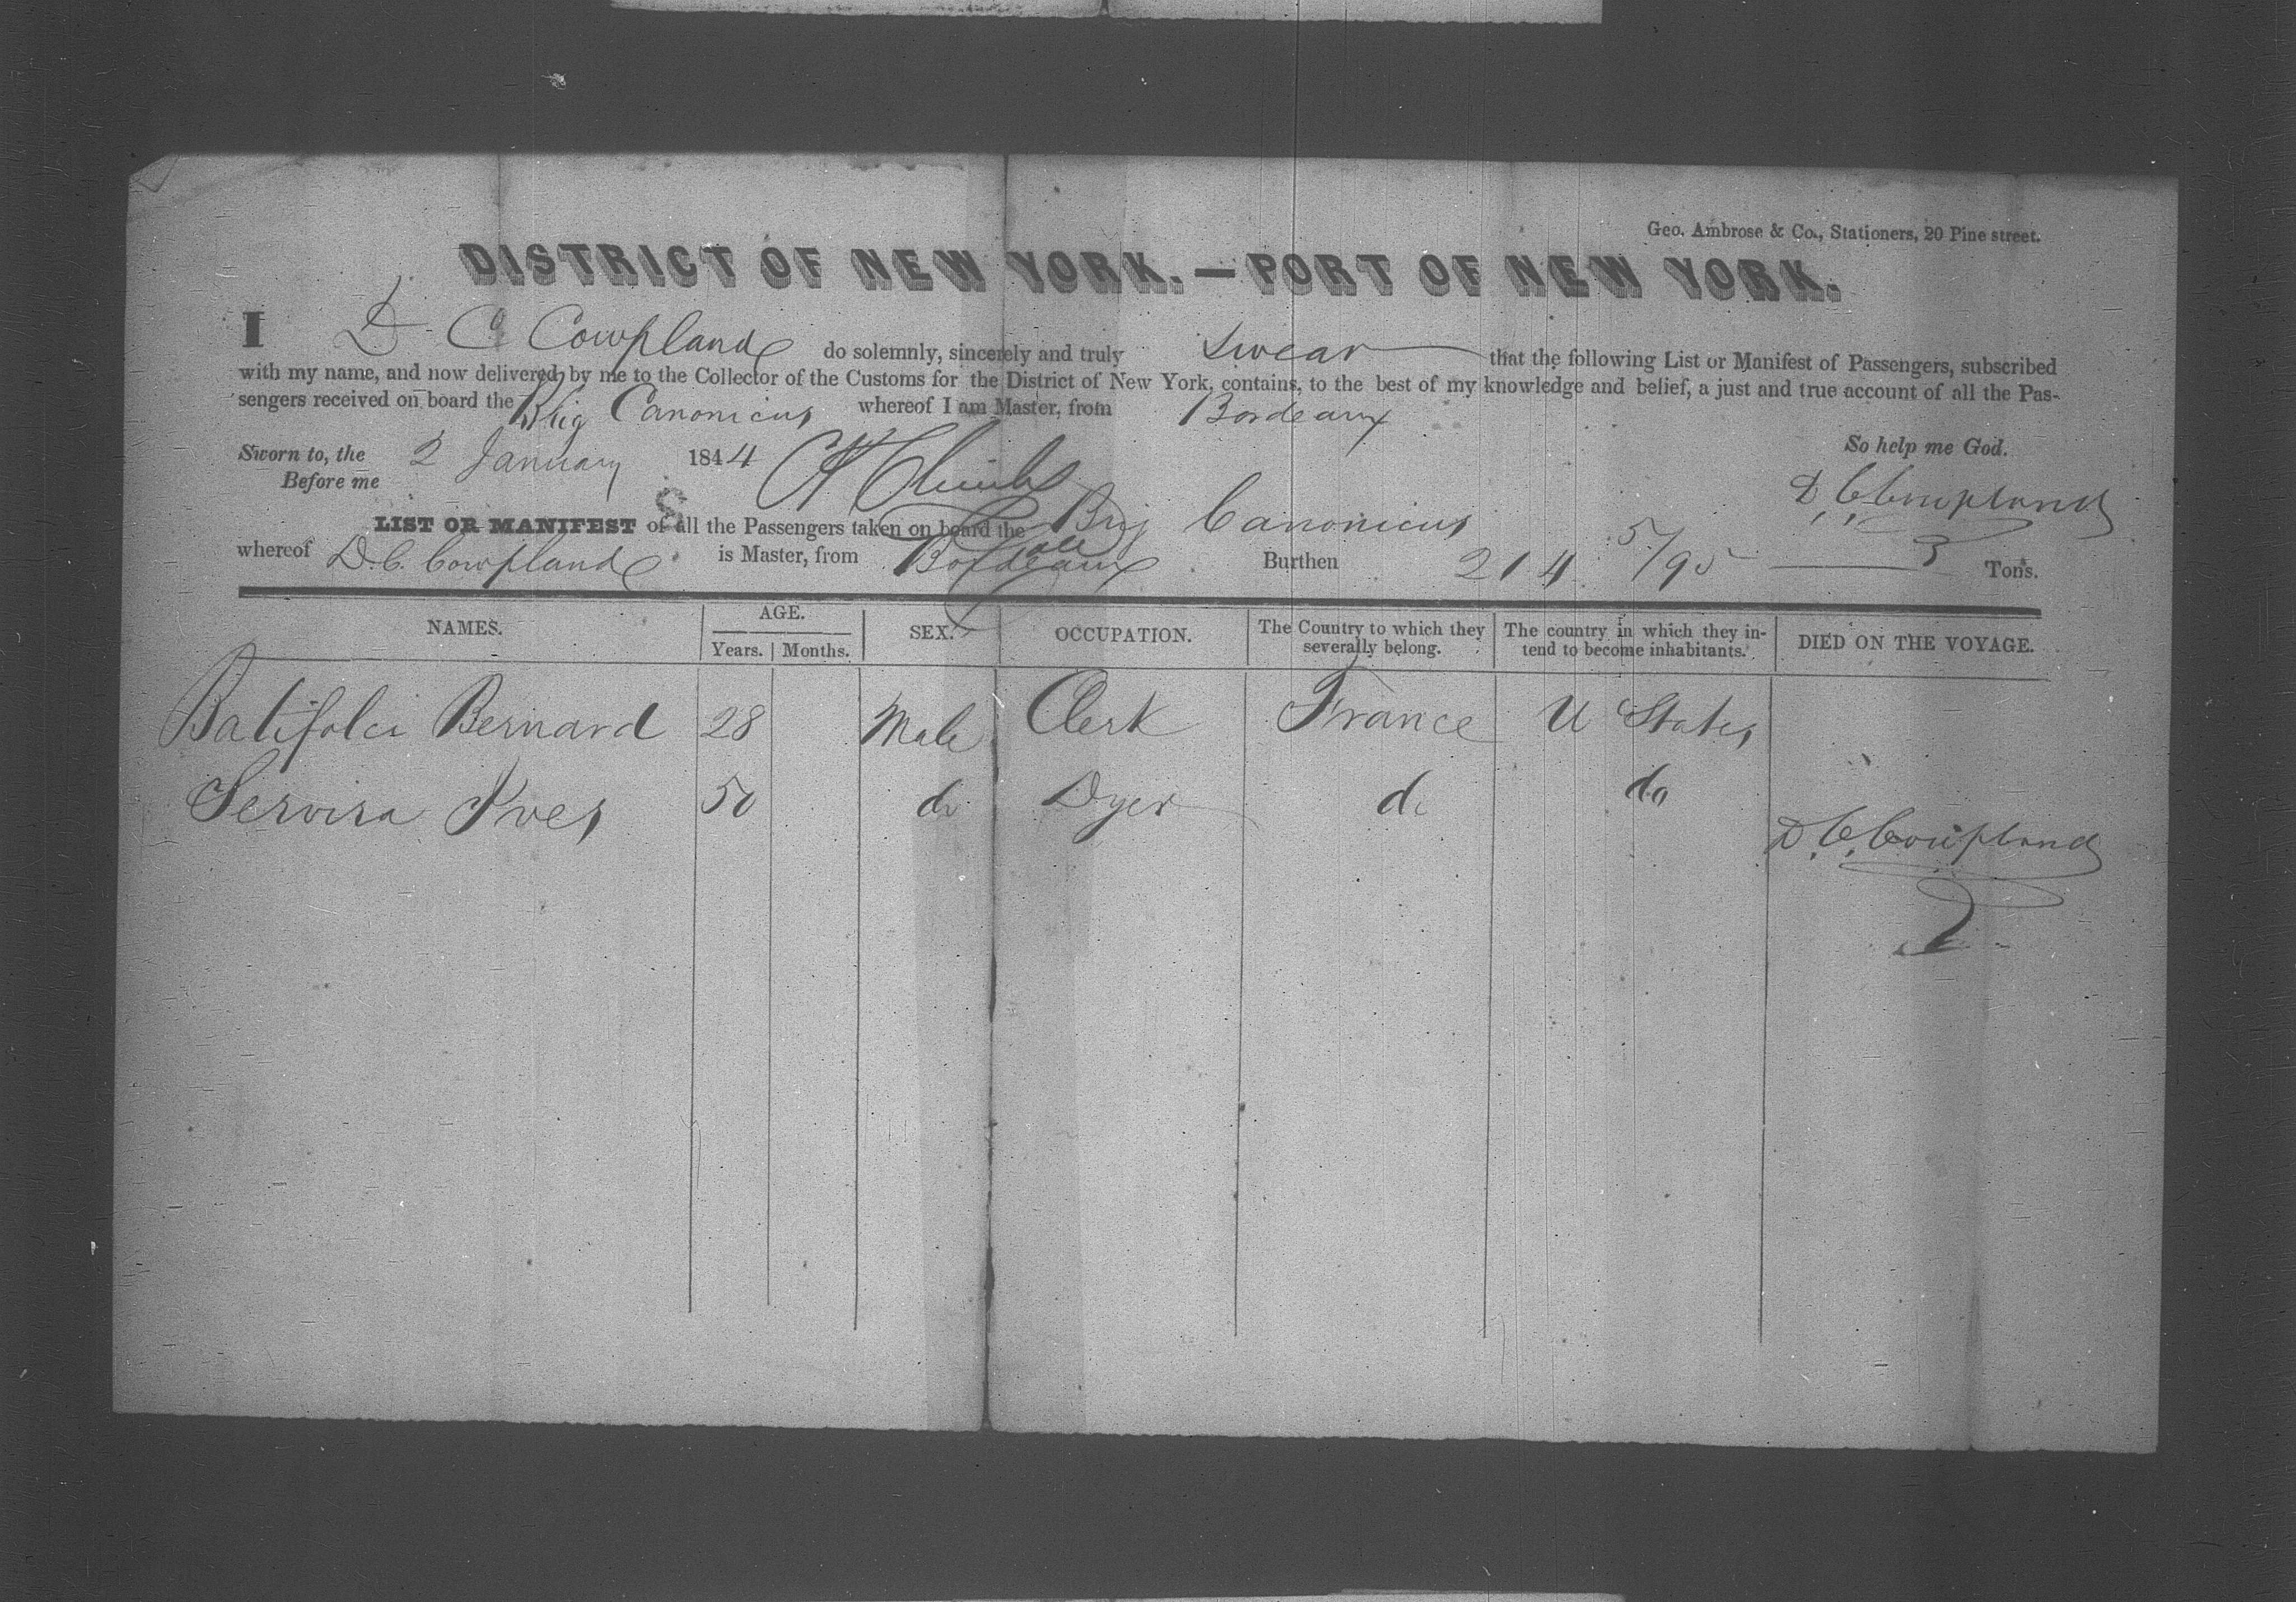 Geo. Ambrose & Co., Stationers, 20 Pine street.
DISTRICT OF NEW YORK.—PORT OF NEW YORK.
I D C Cowpland do solemnly, sincerely and truly Swear that the following List or Manifest of Passengers, subscribed
with my name, and now delivered by me to the Collector of the Customs for the District of New York, contains, to the best of my knowledge and belief, a just and true account of all the Pas-
sengers received on board the Brig Canonicus whereof I am Master, from Bordeaux
So help me God.
Sworn to, the 2 January 1844
Before me
D. C. Cowpland
LIST OR MANIFEST of all the Passengers taken on board the Brig Canonicus
whereof D. C. Cowpland is Master, from Bordeaux Burthen 214 5/95 Tons.
NAMES. AGE. Years. Months. SEX. OCCUPATION. The Country to which they severally belong. The country in which they in-tend to become inhabitants. DIED ON THE VOYAGE.
Batifolci Bernard 28 Male Clerk France U States
Servisa Yves 50 do Dyer do do
D. C. Cowpland